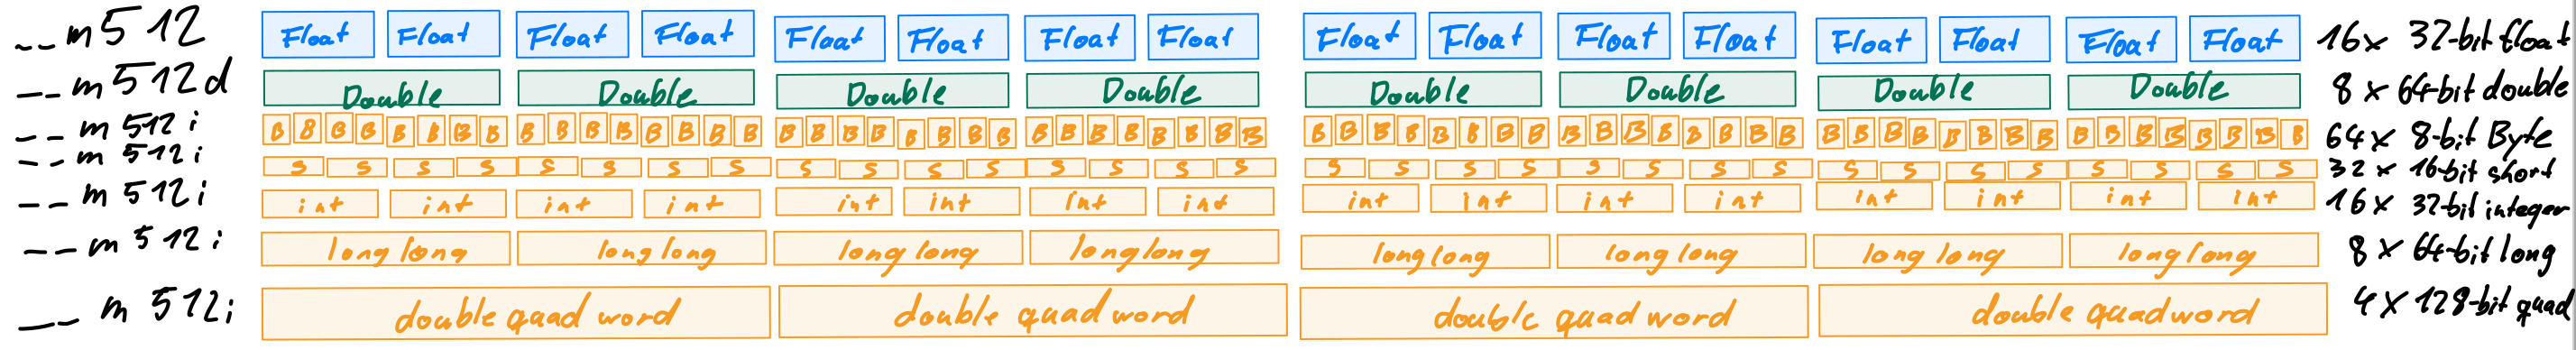 __m512 Float Float Float Float Float Float Float Float Float Float Float Float Float Float Float Float 16x 32-bit float
__m512d Double Double Double Double Double Double Double Double 8 x 64-bit double
__m512i B B B B B B B B B B B B B B B B B B B B B B B B B B B B B B B B B B B B B B B B B B B B B B B B B B B B B B B B B B B B B B B B 64x 8-bit Byte
__m512i S S S S S S S S S S S S S S S S S S S S S S S S S S S S S S S S 32 x 16-bit short
__m512i int int int int int int int int int int int int int int int int 16x 32-bit integer
__m512i long long long long long long long long long long long long long long long long 8 x 64-bit long
__m512i double quad word double quad word double quad word double quad word 4x 128-bit quad